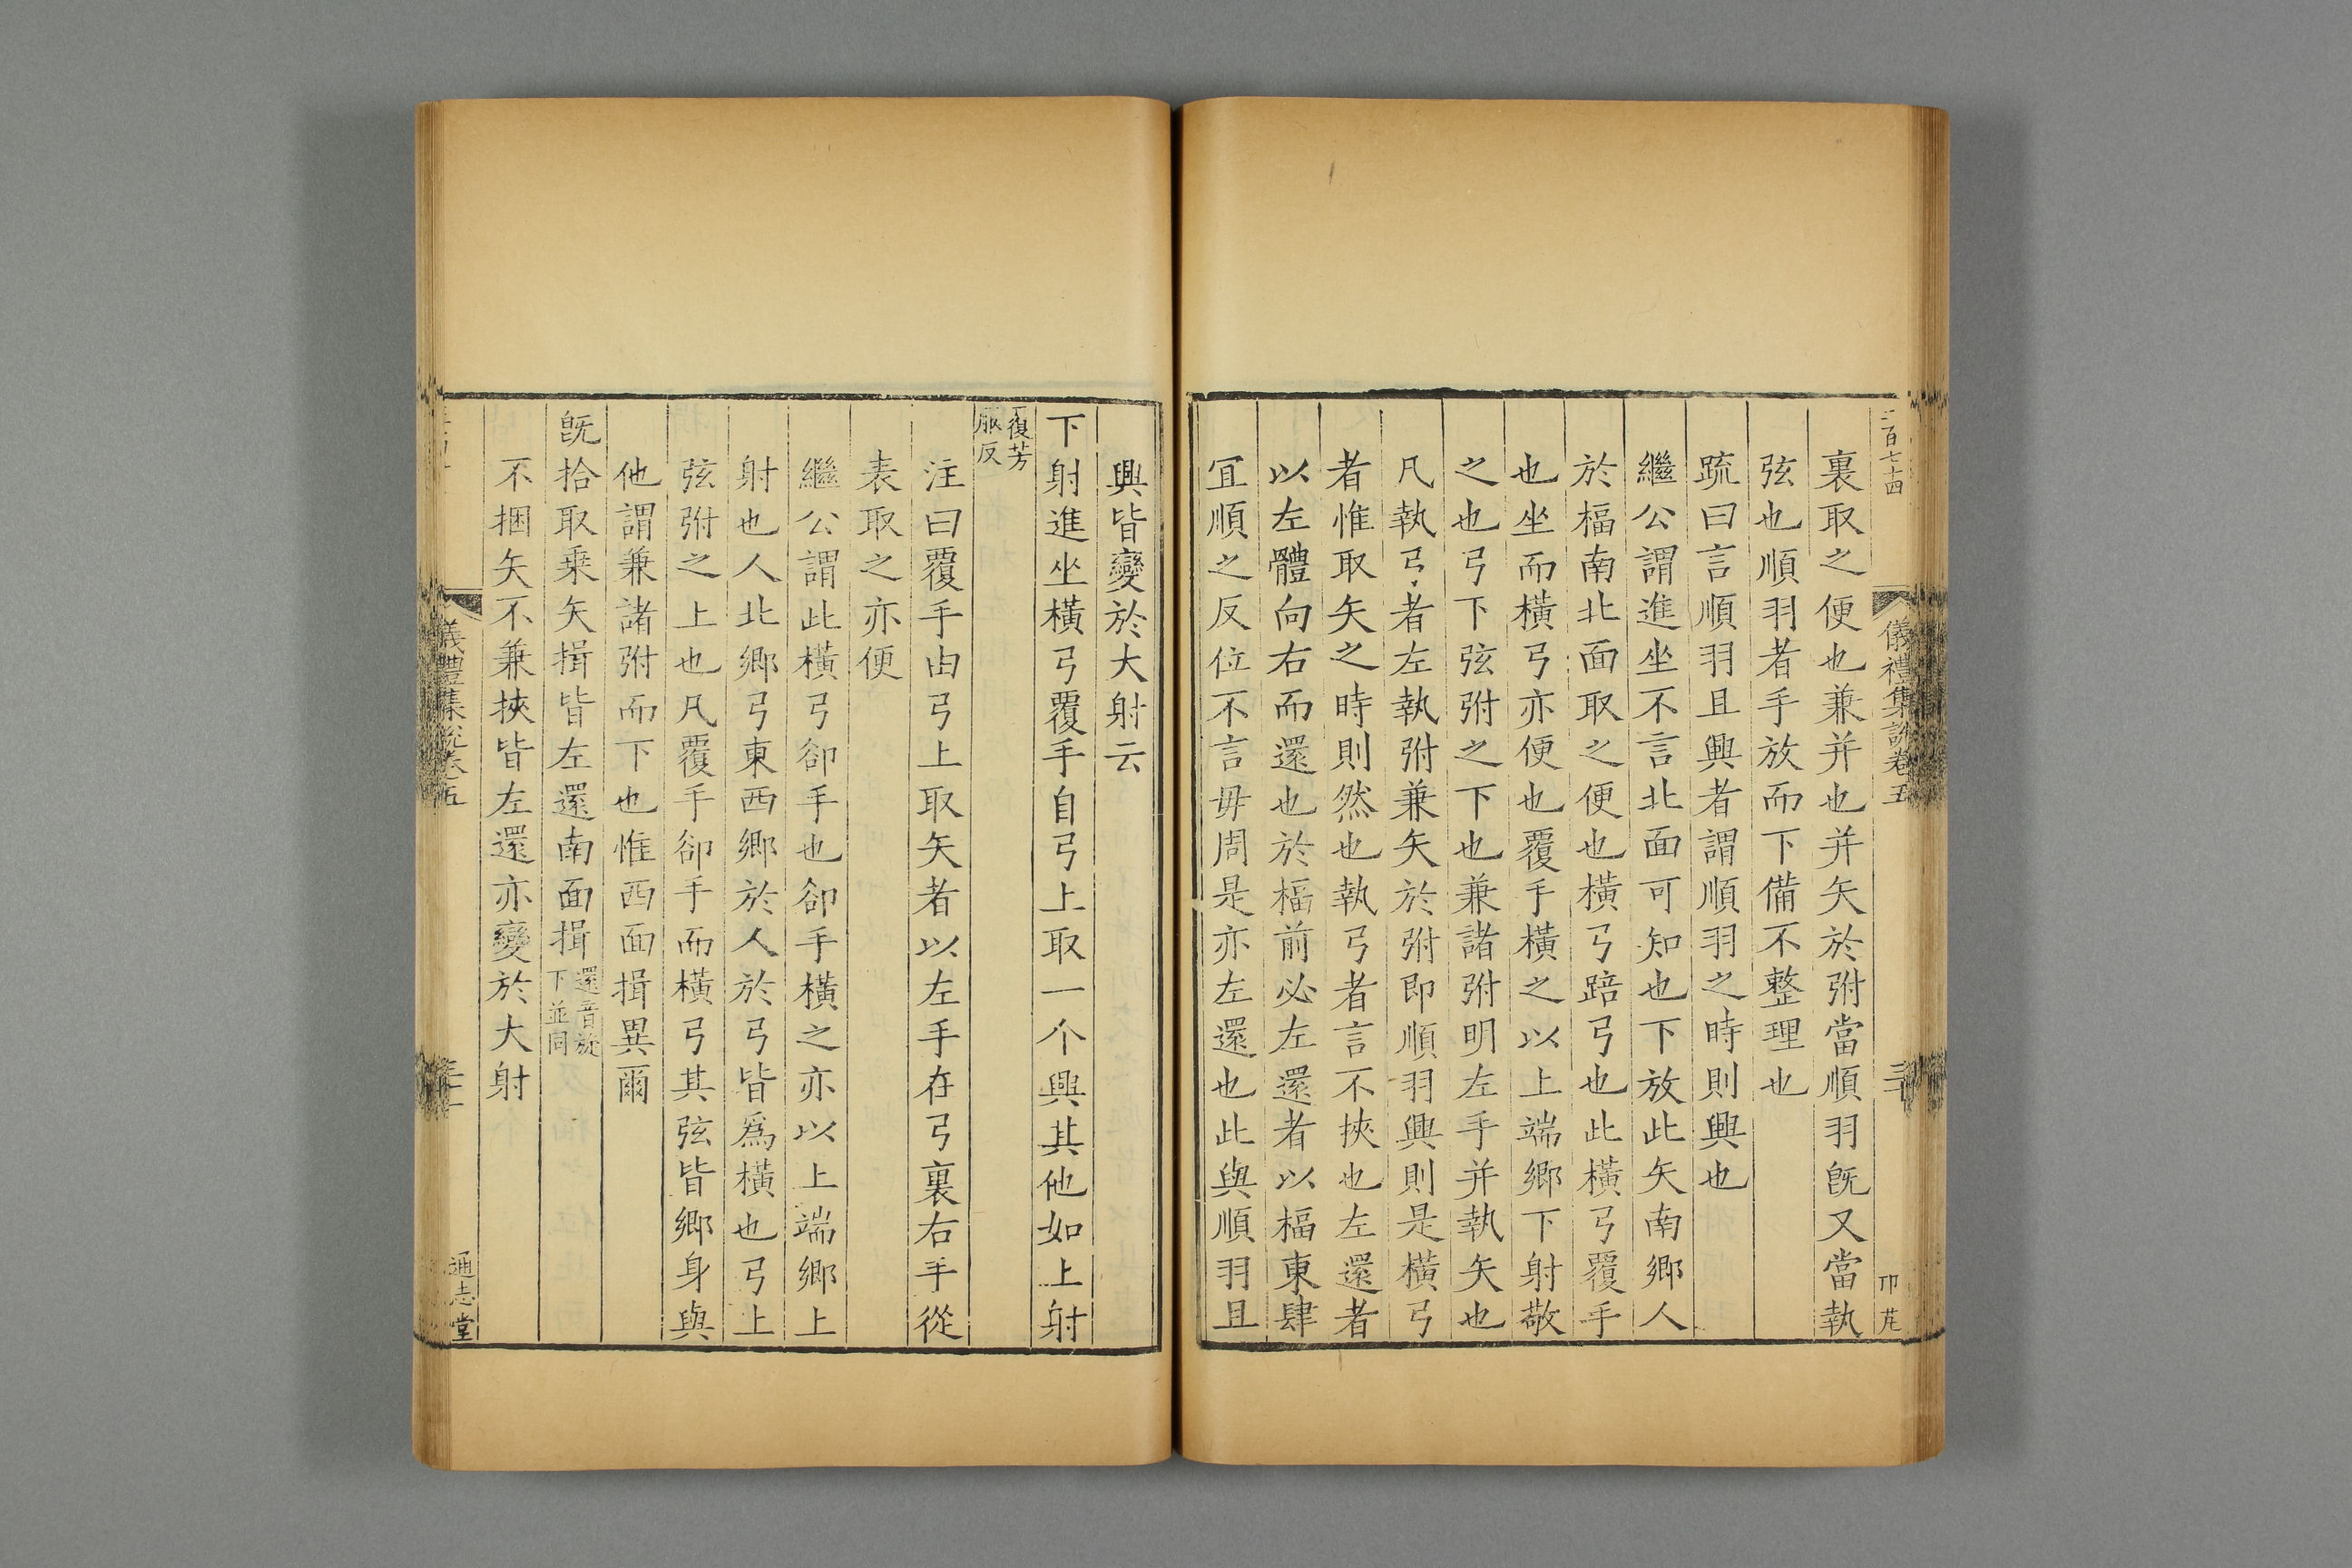 三百七十四
儀禮集說卷五
三十
裏取之便也兼并也并矢於弣當順羽旣又當執
弦也順羽者手放而下備不整理也
疏曰言順羽且興者謂順羽之時則興也
繼公謂進坐不言北面可知也下放此矢南鄉人
於楅南北面取之便也橫弓踣弓也此橫弓覆手
也坐而橫弓亦便也覆手橫之以上端鄉下射敬
之也弓下弦弣之下也兼諸弣明左手并執矢也
凡執弓者左執弣兼矢於弣即順羽興則是橫弓
者惟取矢之時則然也執弓者言不挾也左還者
以左體向右而還也於楅前必左還者以楅東肆
冝順之反位不言毋周是亦左還也此與順羽且
興皆變於大射云
下射進坐橫弓覆手自弓上取一个興其他如上射
覆芳
服反
注曰覆手由弓上取矢者以左手在弓裏右手從
表取之亦便
繼公謂此橫弓卻手也卻手橫之亦以上端鄉上
射也人北鄉弓東西鄉於人於弓皆爲橫也弓上
弦弣之上也凡覆手卻手而橫弓其弦皆鄉身與
他謂兼諸弣而下也惟西面揖異爾
旣拾取乗矢揖皆左還南面揖還音旋
下並同
不捆矢不兼挾皆左還亦變於大射
儀禮集說卷五
通志堂